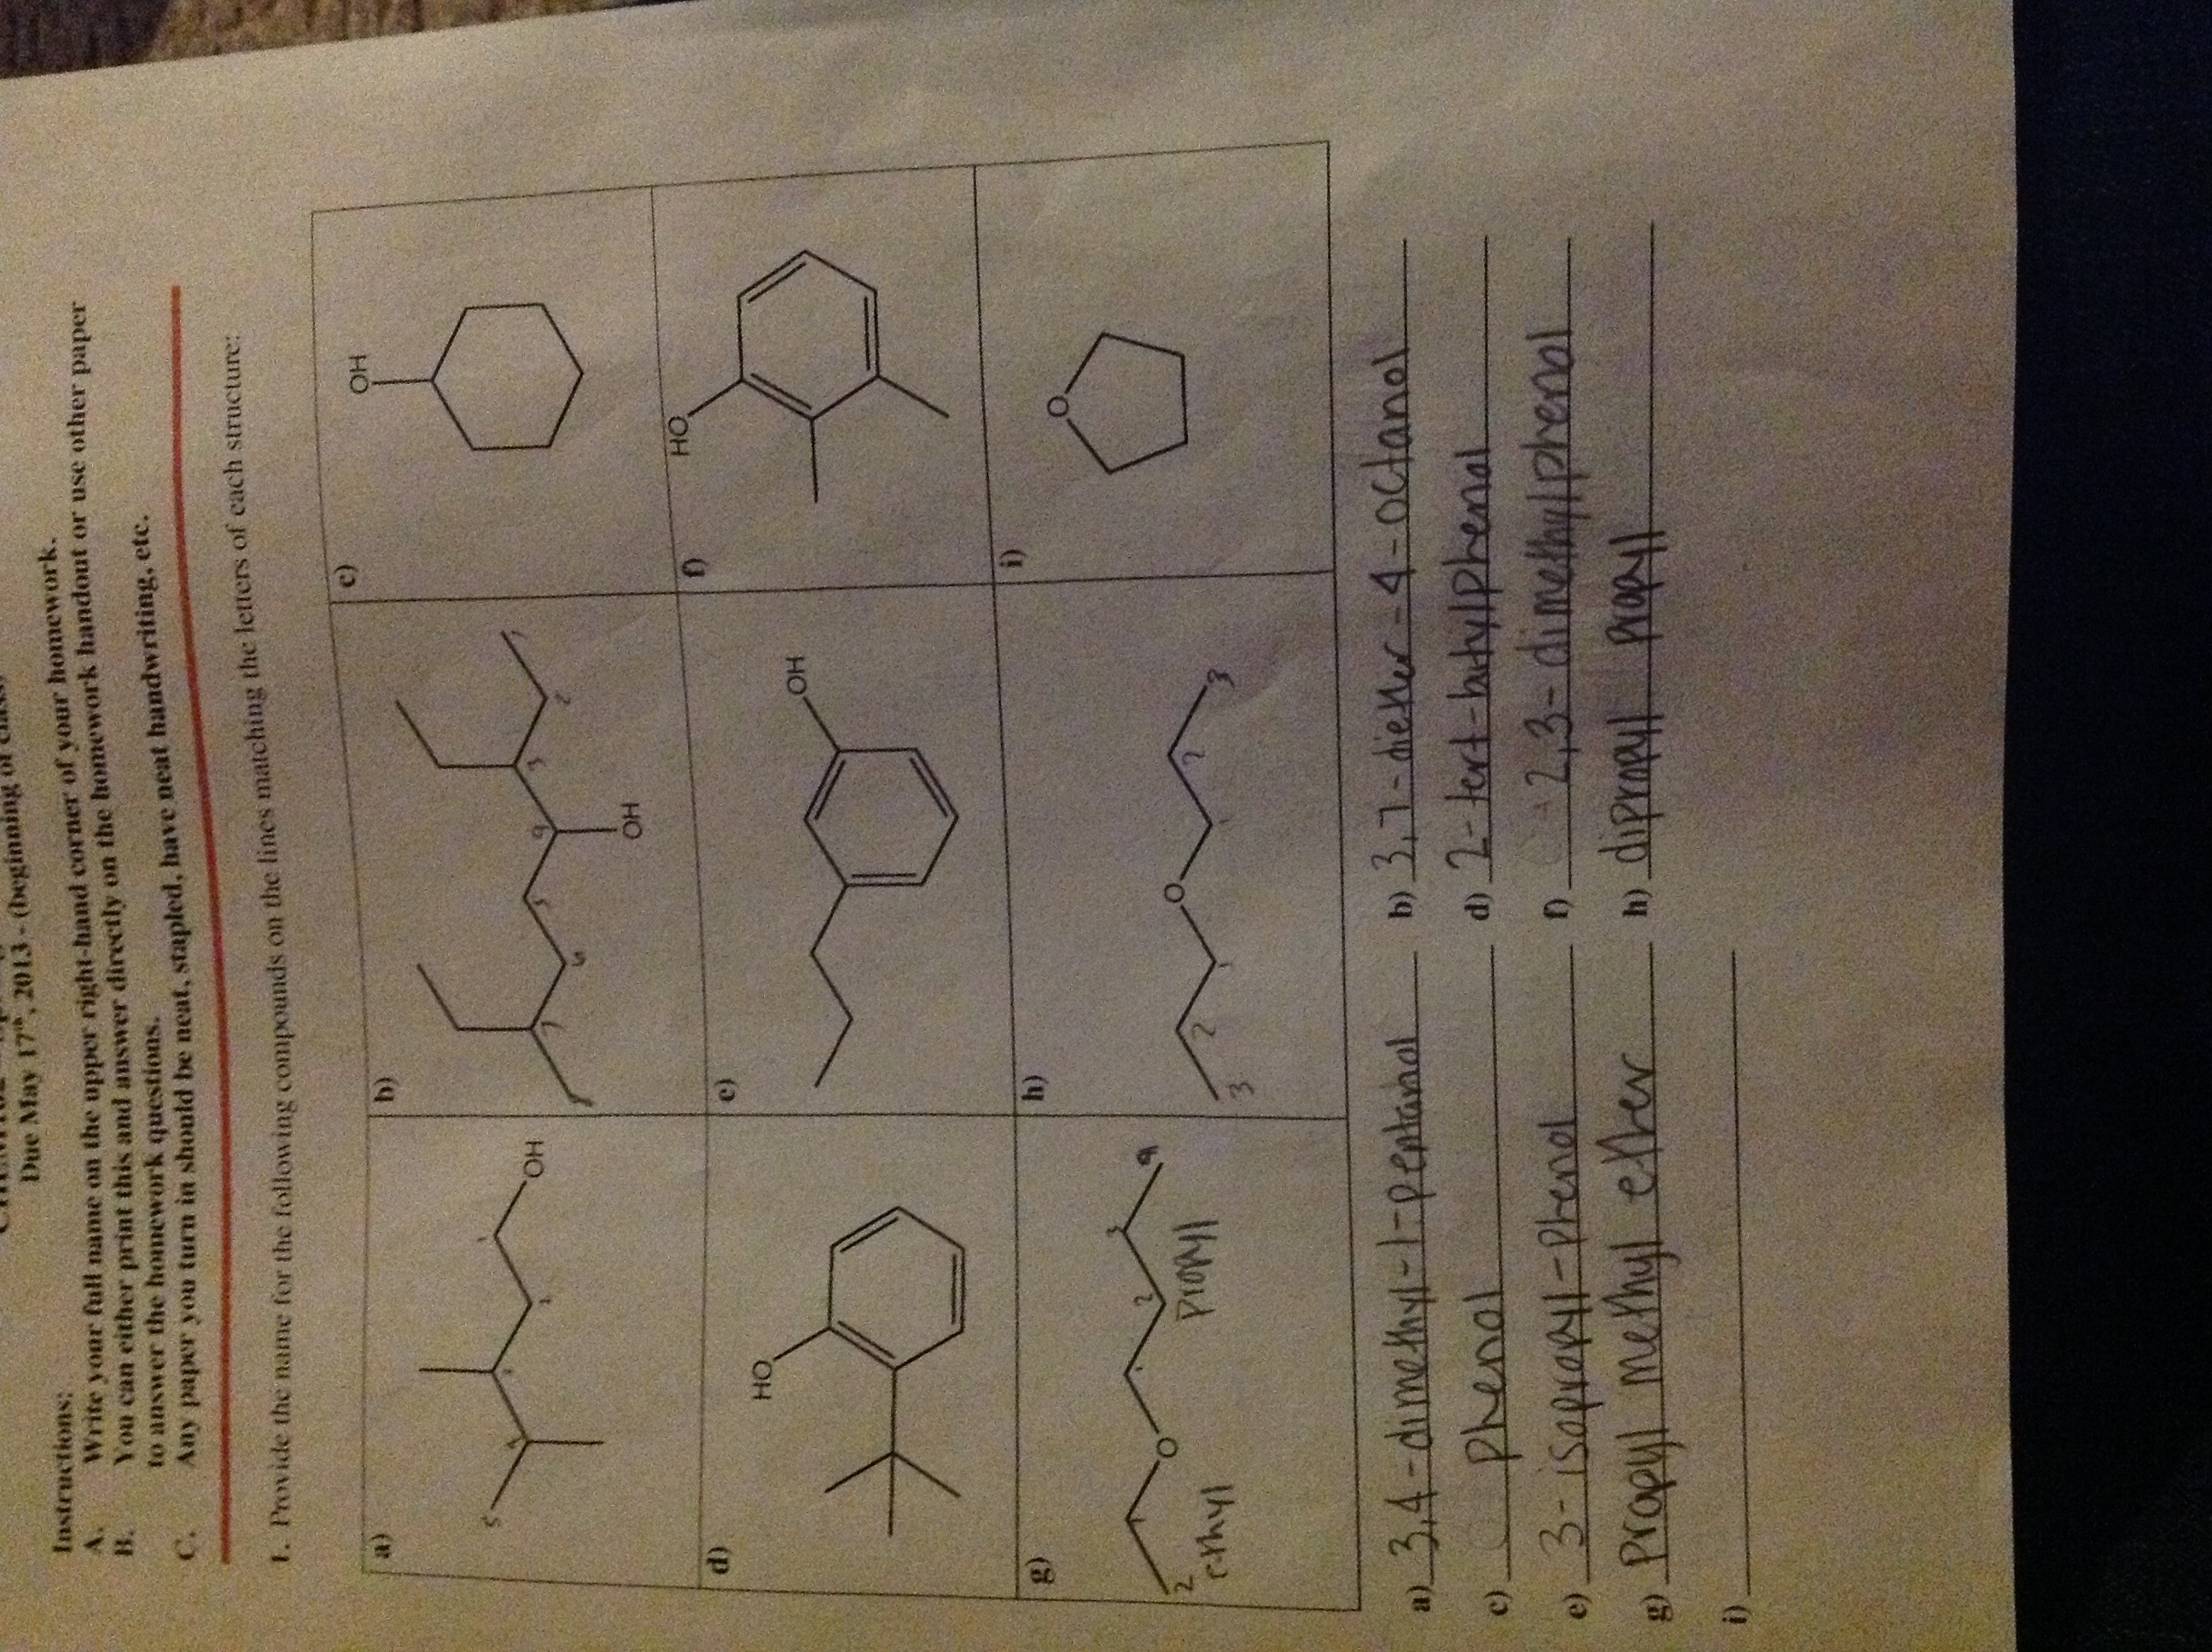 Due May 17th, 2013 - (beginning of class)
Instructions:
A. Write your full name on the upper right-hand corner of your homework.
B. You can either print this and answer directly on the homework handout or use other paper
to answer the homework questions.
C. Any paper you turn in should be neat, stapled, have neat handwriting, etc.
1. Provide the name for the following compounds on the lines matching the letters of each structure:
a) b) c)
OH
5 4 2 1 OH
8 7 6 5 4 3 2 1
OH
d) e) f)
HO
HO
OH
g) h) i)
O
2 1 O 1 2 3 4
ethyl propyl
3 2 1 O 1 2 3
a) 3,4-dimethyl-1-pentanol b) 3,7-diether-4-octanol
c) phenol d) 2-tert-butylphenol
e) 3-isopropyl-phenol f) 2,3-dimethylphenol
g) propyl methyl ether h) dipropyl propyl
i)